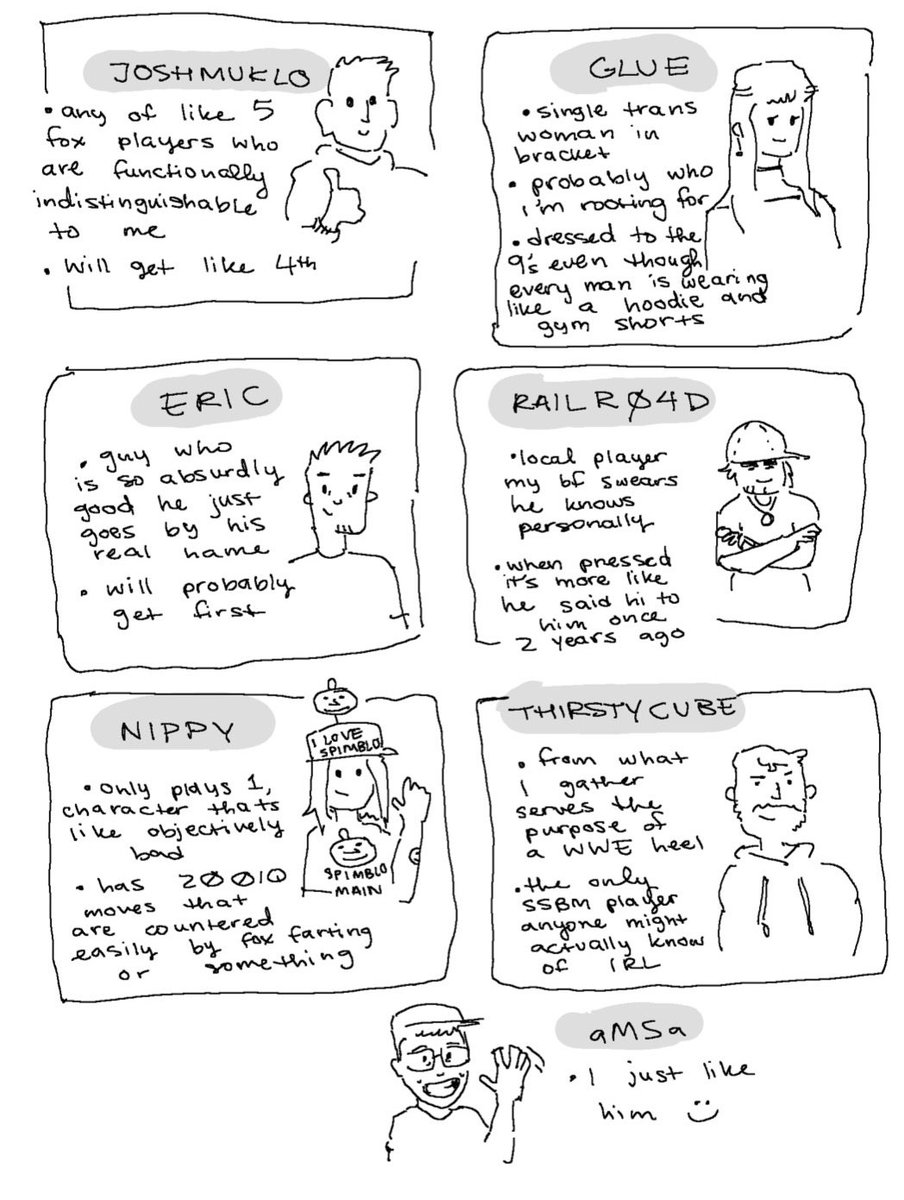 JOSHMUKLO
• any of like 5
fox players who
are functionally
indistinguishable
to me
• will get like 4th
GLUE
• single trans
woman in
bracket
• probably who
i'm rooting for
• dressed to the
9's even though
every man is wearing
like a hoodie and
gym shorts
ERIC
• guy who
is so absurdly
good he just
goes by his
real name
• will probably
get first
RAILRØ4D
• local player
my bf swears
he knows
personally
• when pressed
it's more like
he said hi to
him once
2 years ago
NIPPY
• only plays 1
character thats
like objectively
bad
• has 20010
moves that
are countered
easily by fox farting
or something
I LOVE
SPIMBLO!
SPIMBLO
MAIN
THIRSTYCUBE
• from what
I gather
serves the
purpose of
a WWE heel
• the only
SSBM player
anyone might
actually know
of IRL
aMSa
• I just like
him :)